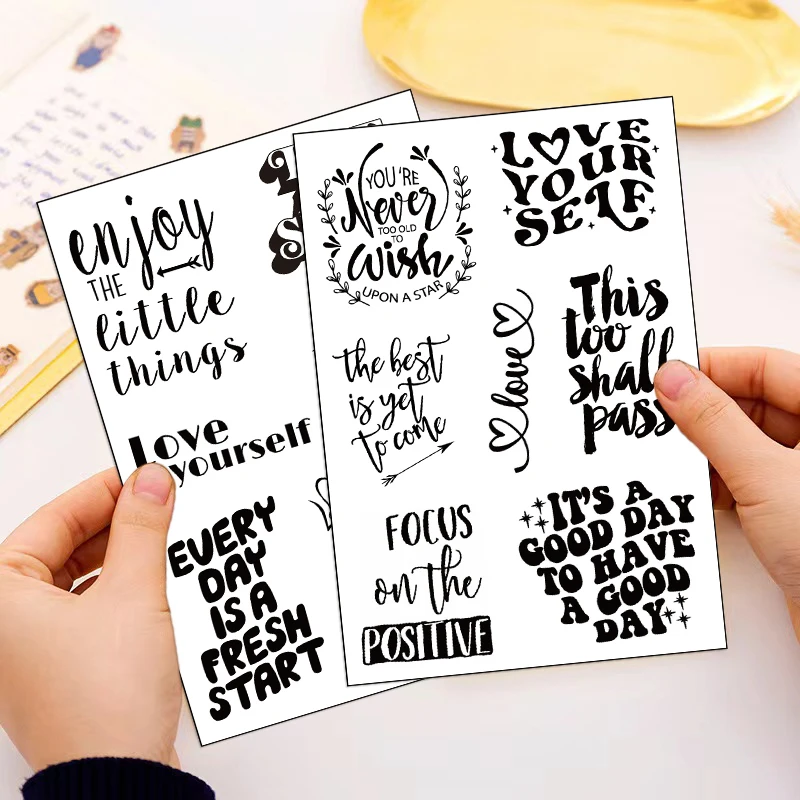 enjoy
THE
little
things
Love
yourself
EVERY
DAY
IS A
FRESH
START
YOU'RE
Never
TOO OLD
TO
Wish
UPON A STAR
LOVE
YOUR
SELF
the best
is yet
to come
love
This
too
shall
pass
FOCUS
on the
POSITIVE
IT'S A
GOOD DAY
TO HAVE
A GOOD
DAY